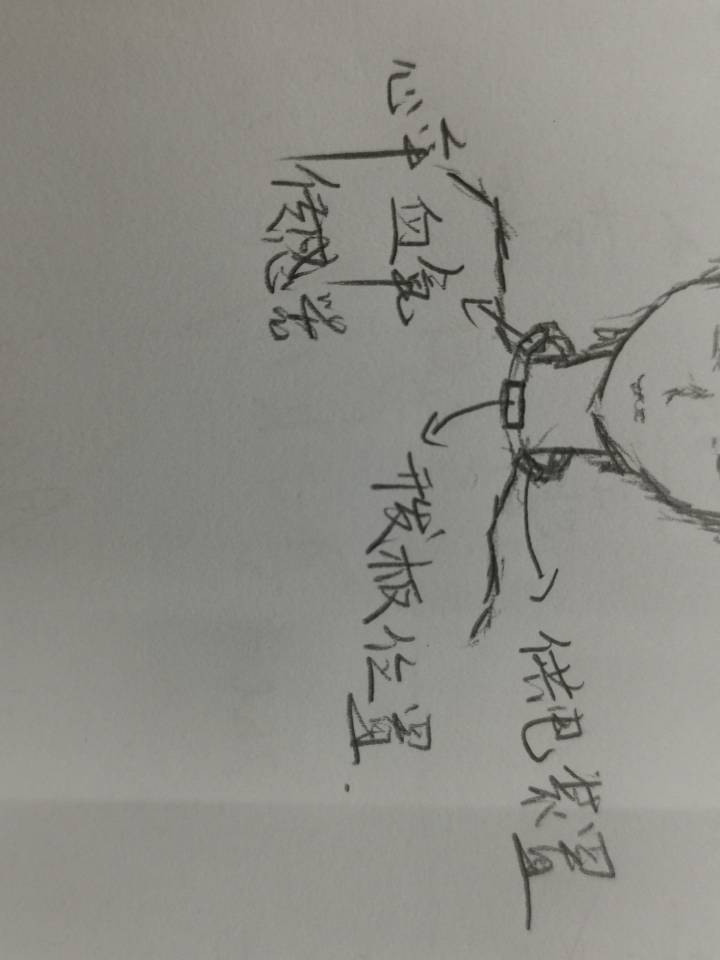 供电装置
心率血氧
传感器
开发板位置.